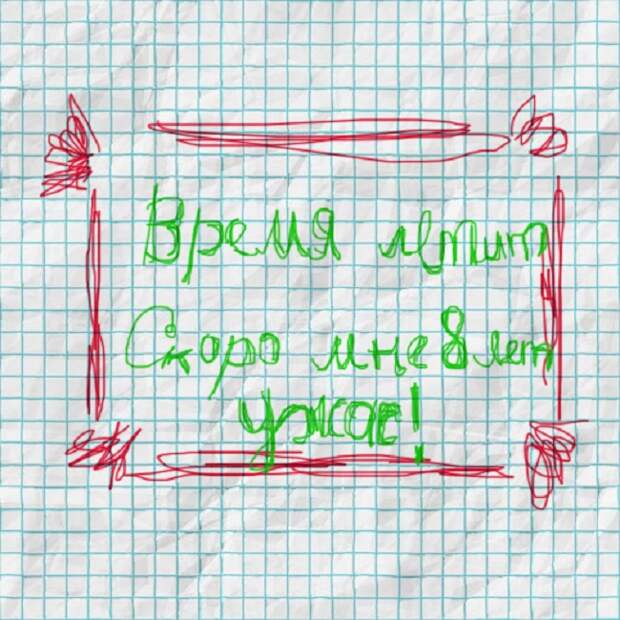 Время летит
Скоро мне 8 лет
ужас!